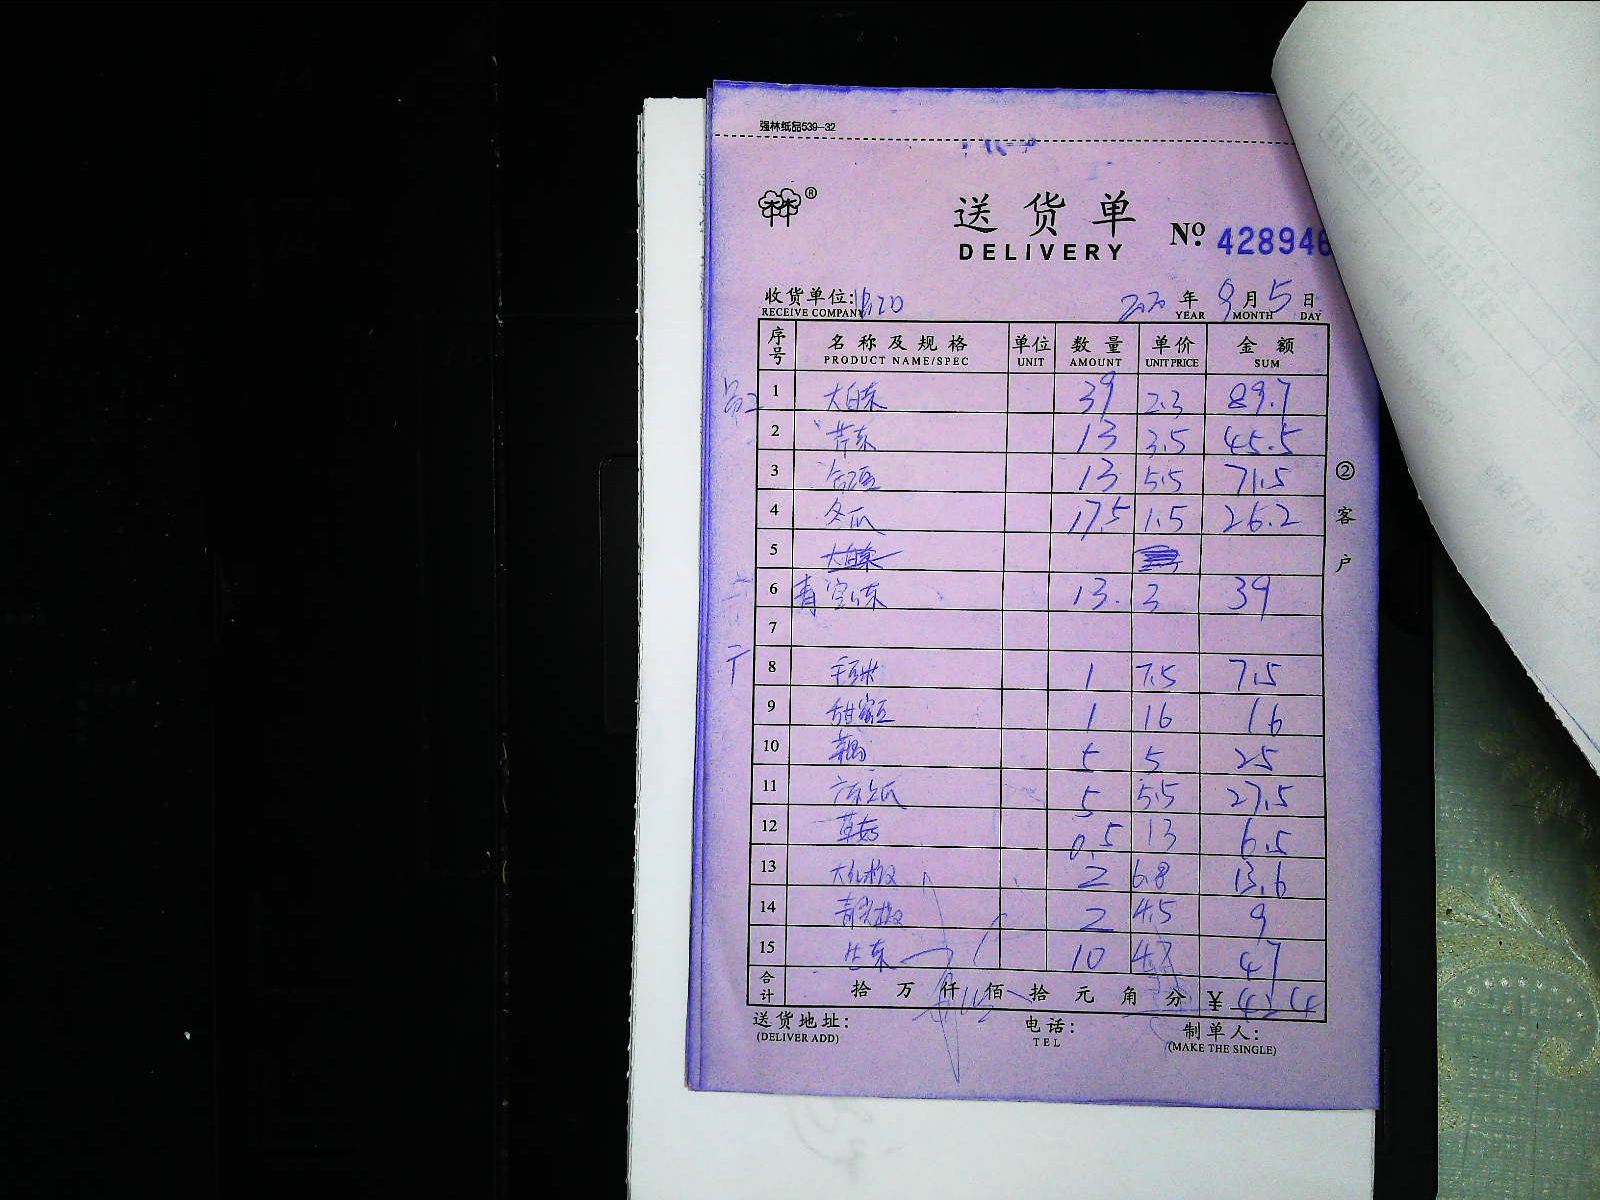 强林纸品539-32
®
送货单
DELIVERY
№ 428946
收货单位:
RECEIVE COMPANY
2020 年 9 月 5 日
YEAR MONTH DAY
序号 名称及规格 单位 数量 单价 金额
PRODUCT NAME/SPEC UNIT AMOUNT UNIT PRICE SUM
1 大白菜 39 2.3 89.7
2 芹菜 13 3.5 45.5
3 13 5.5 71.5
4 冬瓜 17.5 1.5 26.2
5 大白菜
6 青 菜 13. 3 39
7
8 玉米 1 7.5 7.5
9 甜蜜豆 1 16 16
10 5 5 25
11 瓜 5 5.5 27.5
12 草菇 0.5 13 6.5
13 大红椒 2 6.8 13.6
14 青尖椒 2 4.5 9
15 生菜 10 4.7 47
合计 拾 万 仟 佰 拾 元 角 分 ¥ 424
送货地址: 电话: 制单人:
(DELIVER ADD) TEL (MAKE THE SINGLE)
②客户